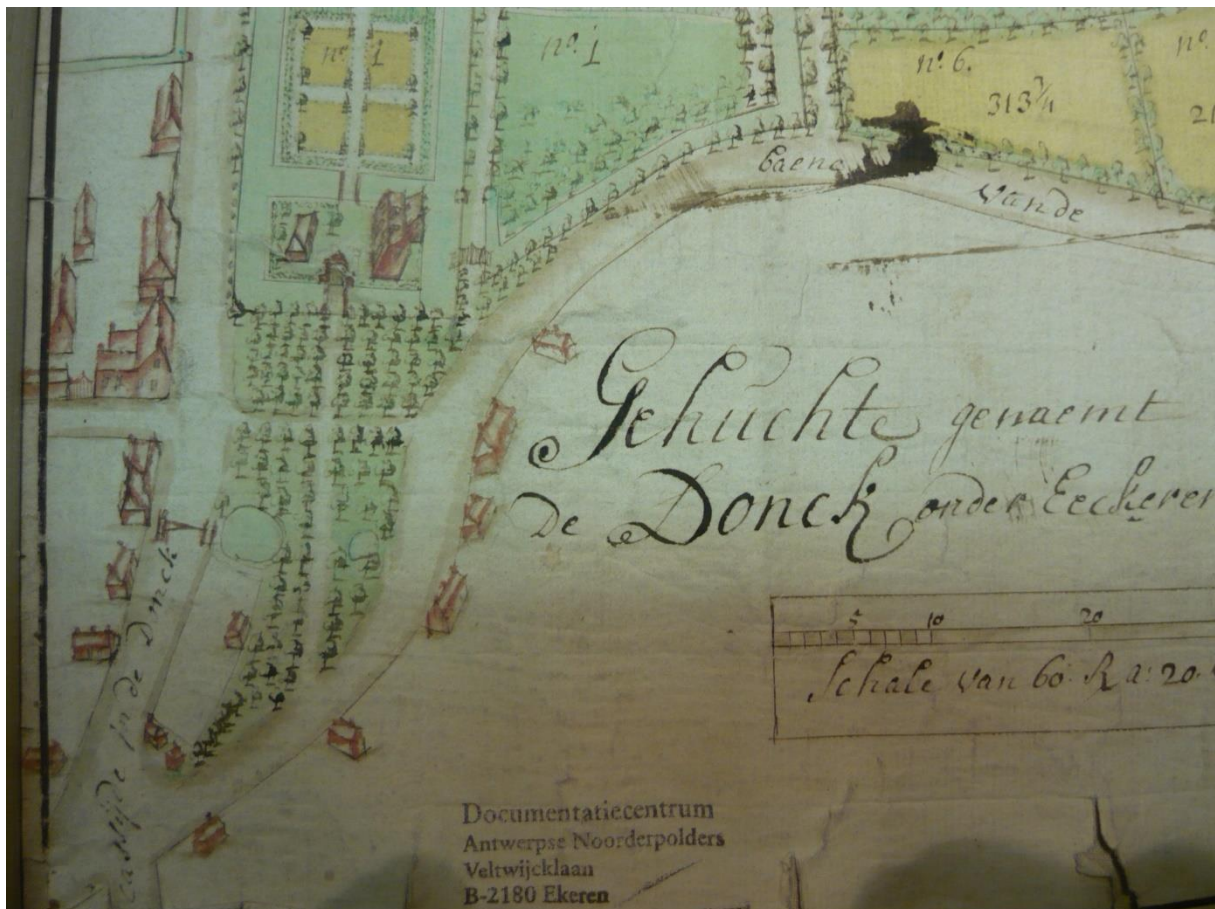 nº 1
nº 1
nº 6.
313 3/4
nº
21
baene
vande
Gehuchte genaemt
de Donck onder Eeckeren
5 10 20
Schale van 60 R a: 20.
cassijde in de Donck
Documentatiecentrum
Antwerpse Noorderpolders
Veltwijcklaan
B-2180 Ekeren